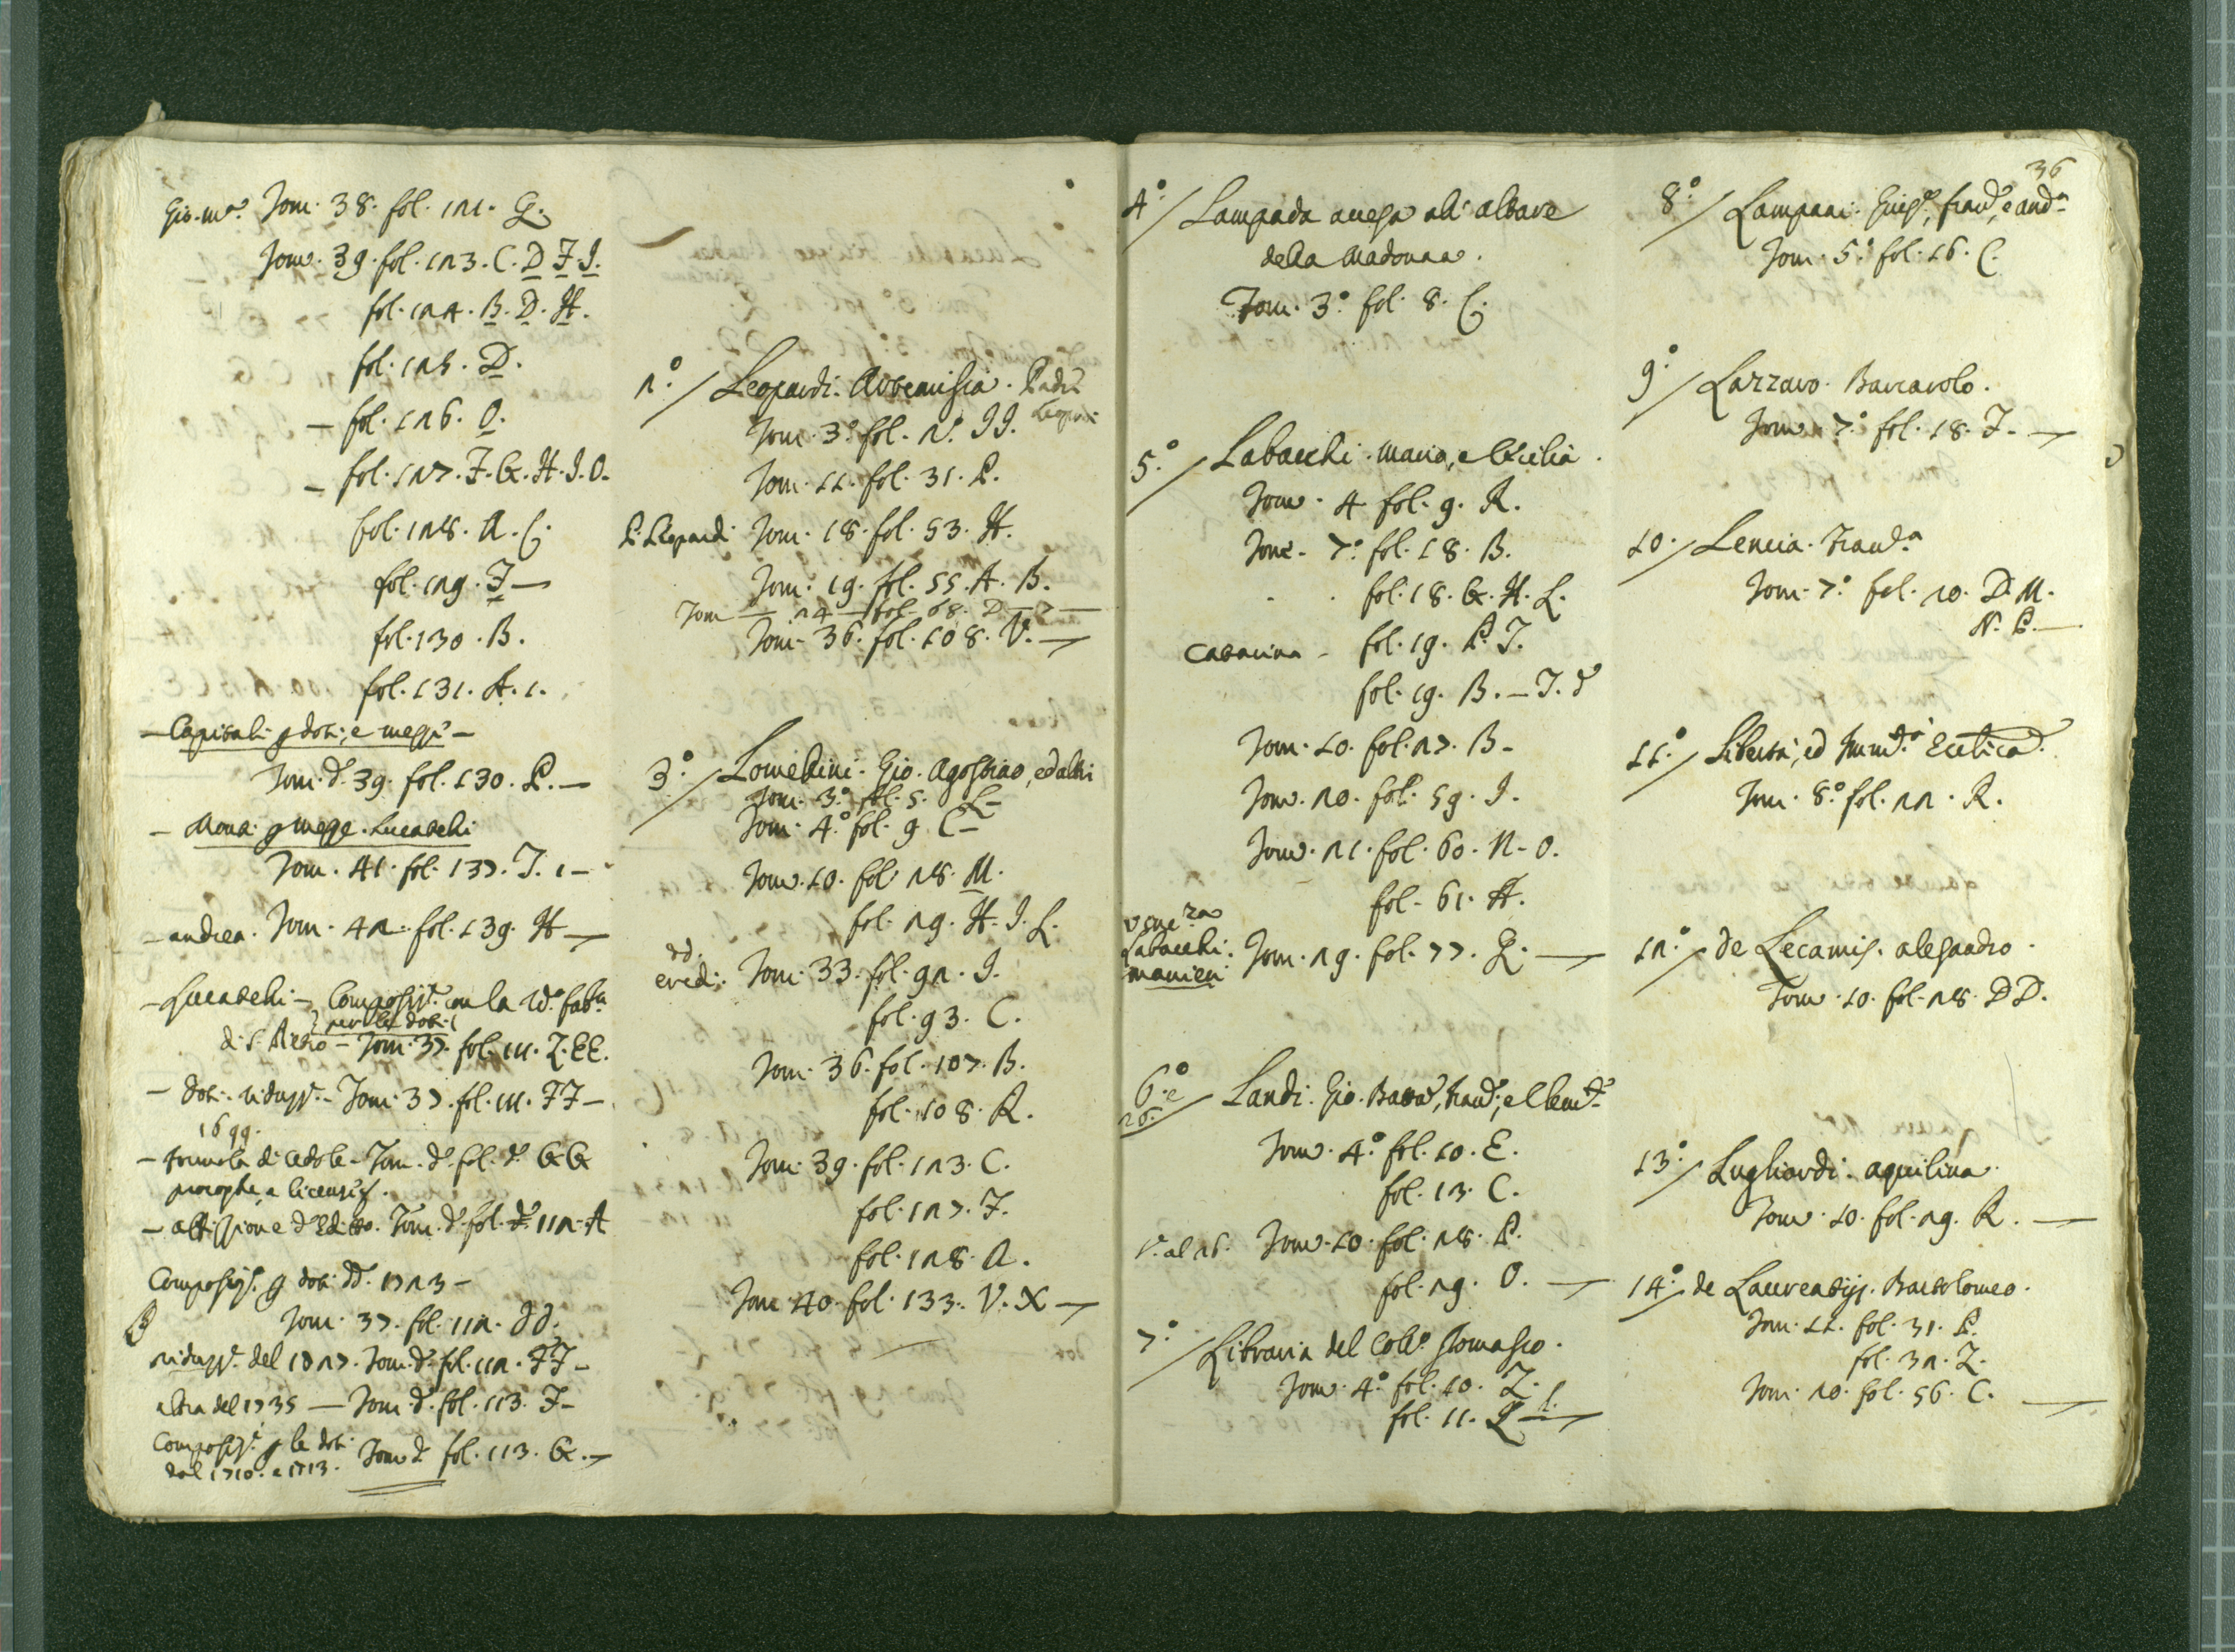 Gio. M.ª Tom. 38. fol. 121. Q.
Tom. 39. fol. 123. C. D. F. I.
fol. 124. B. D. H.
fol. 125. D.
– fol. 126. O.
– fol. 127. F. G. H. I. O.
fol. 128. A. C.
fol. 129. F –
fol. 130. B.
fol. 131. A. 1.
– Capitali p doti, e –
Tom. d.º 39. fol. 130. P. –
Tom. 41. fol. 137. I. 1 –
– Andrea. Tom. 42. fol. 139. H –
– Lucatelli – Composiz.e con la R.da fab.ca
per le doti
di S. Pietro – Tom. 37. fol. 111. Z. EE.
– doti. riduzz.e – Tom. 37. fol. 111. FF –
1699.
– formola di cedole – Tom. d.º fol. d.º GG
– affissione d'Editto. Tom. d.º fol. d.º 112. A
Composiz.e p doti dd. 1723 –
Tom. 37. fol. 112. dd.
riduzz.e del 1727. Tom. d.º fol. 112. FF –
altra del 1735 – Tom. d.º fol. 113. F –
Composiz.e p le doti
dal 1710. e 1713. Tom. d.º fol. 113. G. –
2.º / Leopardi. Artemisia. Padre
Leopardi
Tom. 3.º fol. 2.º II.
Tom. 11. fol. 31. P.
P. Leopardi Tom. 18. fol. 53. H.
Tom. 19. fol. 55. A. B.
Tom – 24 – fol. 68. D –
Tom. 36. fol. 108. V. –
3.º / Lomellini. Gio. Agostino, ed altri
Tom. 3.º fol. 5. L –
Tom. 4.º fol. 9. C –
Tom. 10. fol. 28. M.
fol. 29. H. I. L.
dd.
eredi. Tom. 33. fol. 92. I.
fol. 93. C.
Tom. 36. fol. 107. B.
fol. 108. R.
Tom. 39. fol. 123. C.
fol. 127. F.
fol. 128. A.
Tom. 40. fol. 133. V. X –
4.º / Lampada accesa all' altare
della Madonna.
Tom. 3.º fol. 8. C.
5.º / Labacchi. Maria, e Cecilia.
Tom. 4. fol. 9. R.
Tom. 7.º fol. 18. B.
fol. 18. G. H. L.
Catarina – fol. 19. P. I.
fol. 19. B. – I. d
Tom. 10. fol. 27. B –
Tom. 20. fol. 59. I.
Tom. 21. fol. 60. N. O.
fol. 61. A.
Labacchi.
Manieri Tom. 29. fol. 77. Q. –
6.º e
26. / Landi. Gio. Batta, Fran.co, e Clem.te
Tom. 4.º fol. 10. E.
fol. 13. C.
V. al 26. Tom. 10. fol. 28. P.
fol. 29. O. –
7.º / Libraria del Coll.º Tomasio.
Tom. 4.º fol. 10. Z.
fol. 11. Q –
36
8.º / Lampani. Fran.co, e And.ª
Tom. 5.º fol. 16. C.
9.º / Lazzaro. Barcarolo.
Tom. 7.º fol. 18. F. –
10. / Lencia. Fran.ca
Tom. 7.º fol. 20. D. M.
N. P. –
11.º / Libertà, ed Imm.tà Eccl.ica
Tom. 8.º fol. 22. R.
12.º / de Lecamis. Alesandro.
Tom. 10. fol. 28. DD.
13.º / Lugliardi. Aquilina.
Tom. 10. fol. 29. R. –
14.º / de Laureatijs. Bartolomeo.
Tom. 11. fol. 31. P.
fol. 32. Z.
Tom. 20. fol. 56. C. –